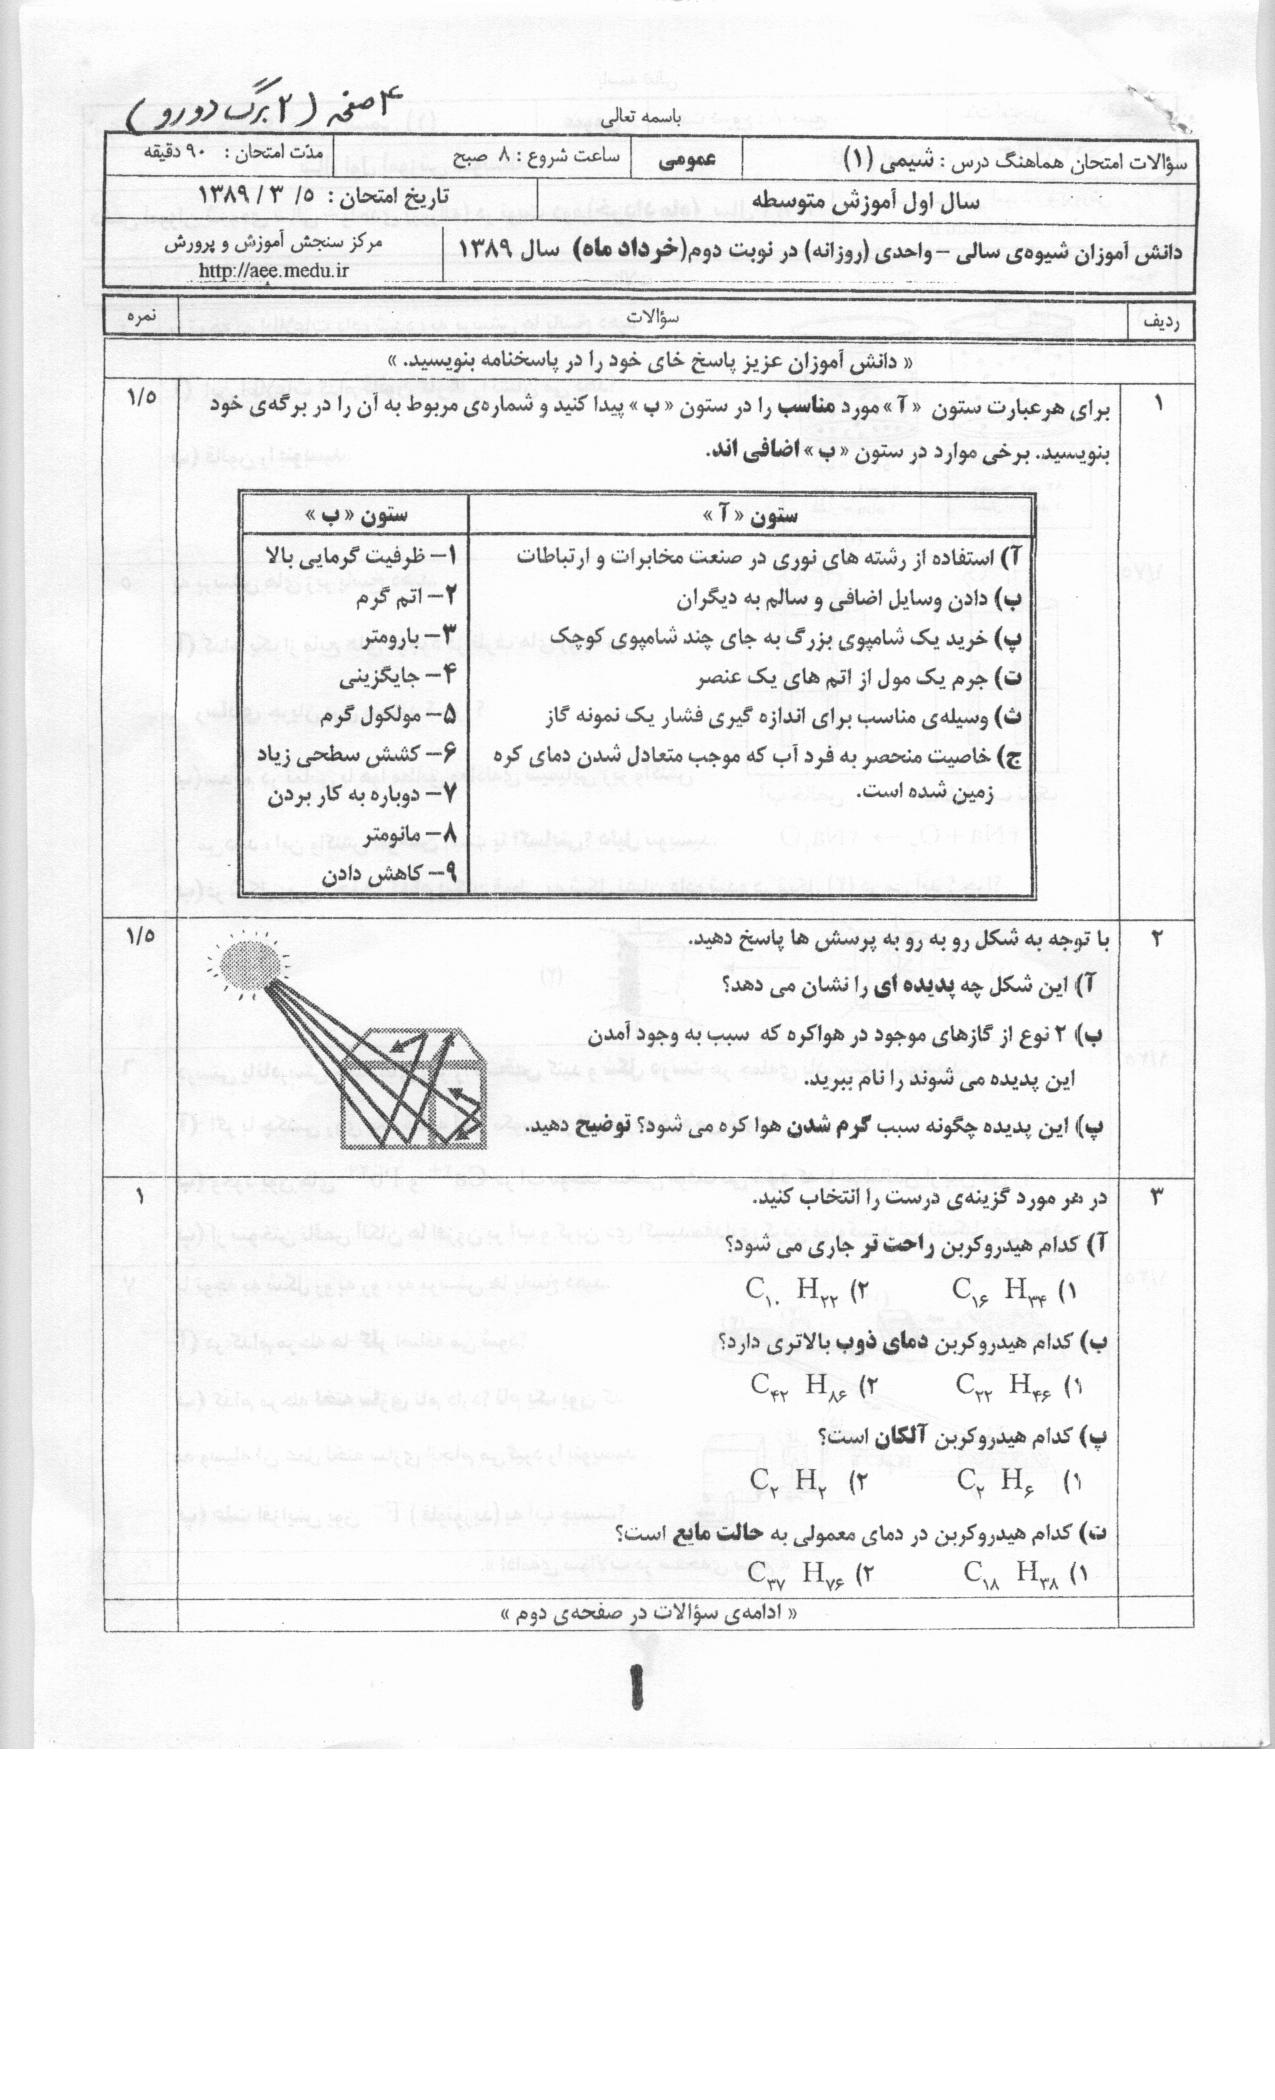 ۴ صفحه (۲ برگ دورو)
باسمه تعالی
سؤالات امتحان هماهنگ درس : شیمی (۱) عمومی ساعت شروع : ۸ صبح مدّت امتحان : ۹۰ دقیقه
سال اول آموزش متوسطه تاریخ امتحان : ۵/ ۳ / ۱۳۸۹
دانش آموزان شیوه‌ی سالی – واحدی (روزانه) در نوبت دوم(خرداد ماه) سال ۱۳۸۹ مرکز سنجش آموزش و پرورش
http://aee.medu.ir
ردیف سؤالات نمره
« دانش آموزان عزیز پاسخ خای خود را در پاسخنامه بنویسید. »
۱ برای هرعبارت ستون « آ » مورد مناسب را در ستون « ب » پیدا کنید و شماره‌ی مربوط به آن را در برگه‌ی خود ۱/۵
بنویسید. برخی موارد در ستون « ب » اضافی اند.
ستون « آ » ستون « ب »
آ) استفاده از رشته های نوری در صنعت مخابرات و ارتباطات ۱– ظرفیت گرمایی بالا
ب) دادن وسایل اضافی و سالم به دیگران ۲– اتم گرم
پ) خرید یک شامپوی بزرگ به جای چند شامپوی کوچک ۳– بارومتر
ت) جرم یک مول از اتم های یک عنصر ۴– جایگزینی
ث) وسیله‌ی مناسب برای اندازه گیری فشار یک نمونه گاز ۵– مولکول گرم
ج) خاصیت منحصر به فرد آب که موجب متعادل شدن دمای کره ۶– کشش سطحی زیاد
زمین شده است. ۷– دوباره به کار بردن
۸– مانومتر
۹– کاهش دادن
۲ با توجه به شکل رو به رو به پرسش ها پاسخ دهید. ۱/۵
آ) این شکل چه پدیده ای را نشان می دهد؟
ب) ۲ نوع از گازهای موجود در هواکره که سبب به وجود آمدن
این پدیده می شوند را نام ببرید.
پ) این پدیده چگونه سبب گرم شدن هوا کره می شود؟ توضیح دهید.
۳ در هر مورد گزینه‌ی درست را انتخاب کنید. ۱
آ) کدام هیدروکربن راحت تر جاری می شود؟
۱) C۱۶ H۳۴ ۲) C۱۰ H۲۲
ب) کدام هیدروکربن دمای ذوب بالاتری دارد؟
۱) C۲۲ H۴۶ ۲) C۴۲ H۸۶
پ) کدام هیدروکربن آلکان است؟
۱) C۲ H۶ ۲) C۲ H۲
ت) کدام هیدروکربن در دمای معمولی به حالت مایع است؟
۱) C۱۸ H۳۸ ۲) C۳۷ H۷۶
« ادامه‌ی سؤالات در صفحه‌ی دوم »
۱